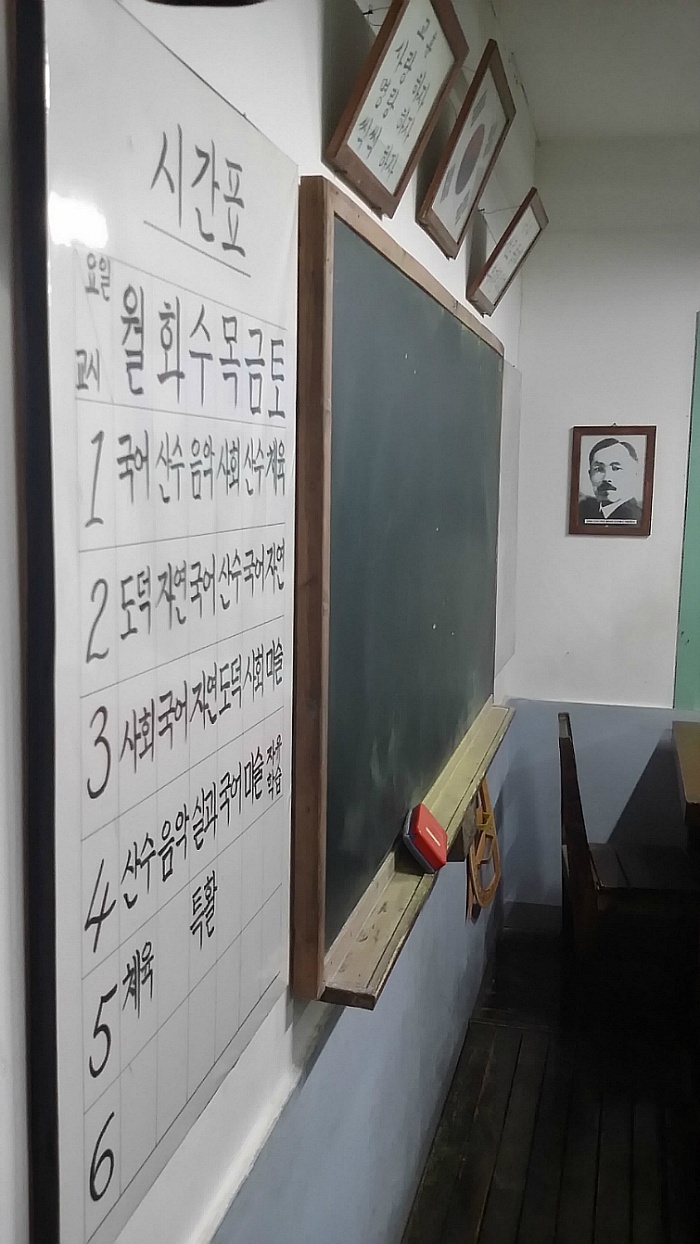 시간표
요일
교시
월 화 수 목 금 토
1 국어 산수 음악 사회 산수 체육
2 도덕 자연 국어 산수 국어 자연
3 사회 국어 자연 도덕 사회 미술
4 산수 음악 실과 국어 미술 자유
학습
5 체육 특활
6
사랑 하자
명랑 하자
씩씩 하자